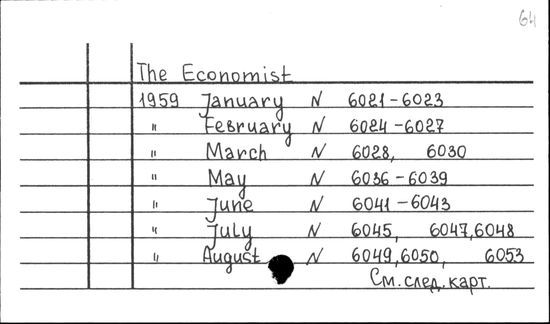 64
The Economist
1959 January N 6021-6023
" February N 6024-6027
" March N 6028, 6030
" May N 6036-6039
" June N 6041-6043
" July N 6045, 6047,6048
" August N 6049,6050, 6053
См. след. карт.